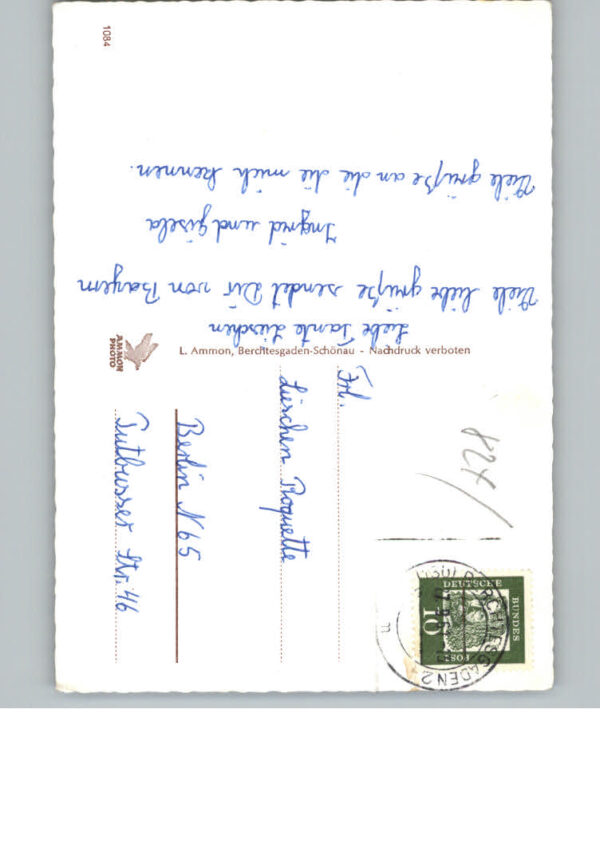 Liebe Tante Lieschen
Viele liebe grüße sendet Dir von Bayern
Ingrid und Gisela
Viele grüße an die die mich kennen.
1084
AMMON
PHOTO
L. Ammon, Berchtesgaden-Schönau - Nachdruck verboten
Frl.
Lieschen Roquette
Berlin N 65
Putbusser Str. 46
824/
DEUTSCHE
BUNDES
POST
10
BERCHTESGADEN 2
m